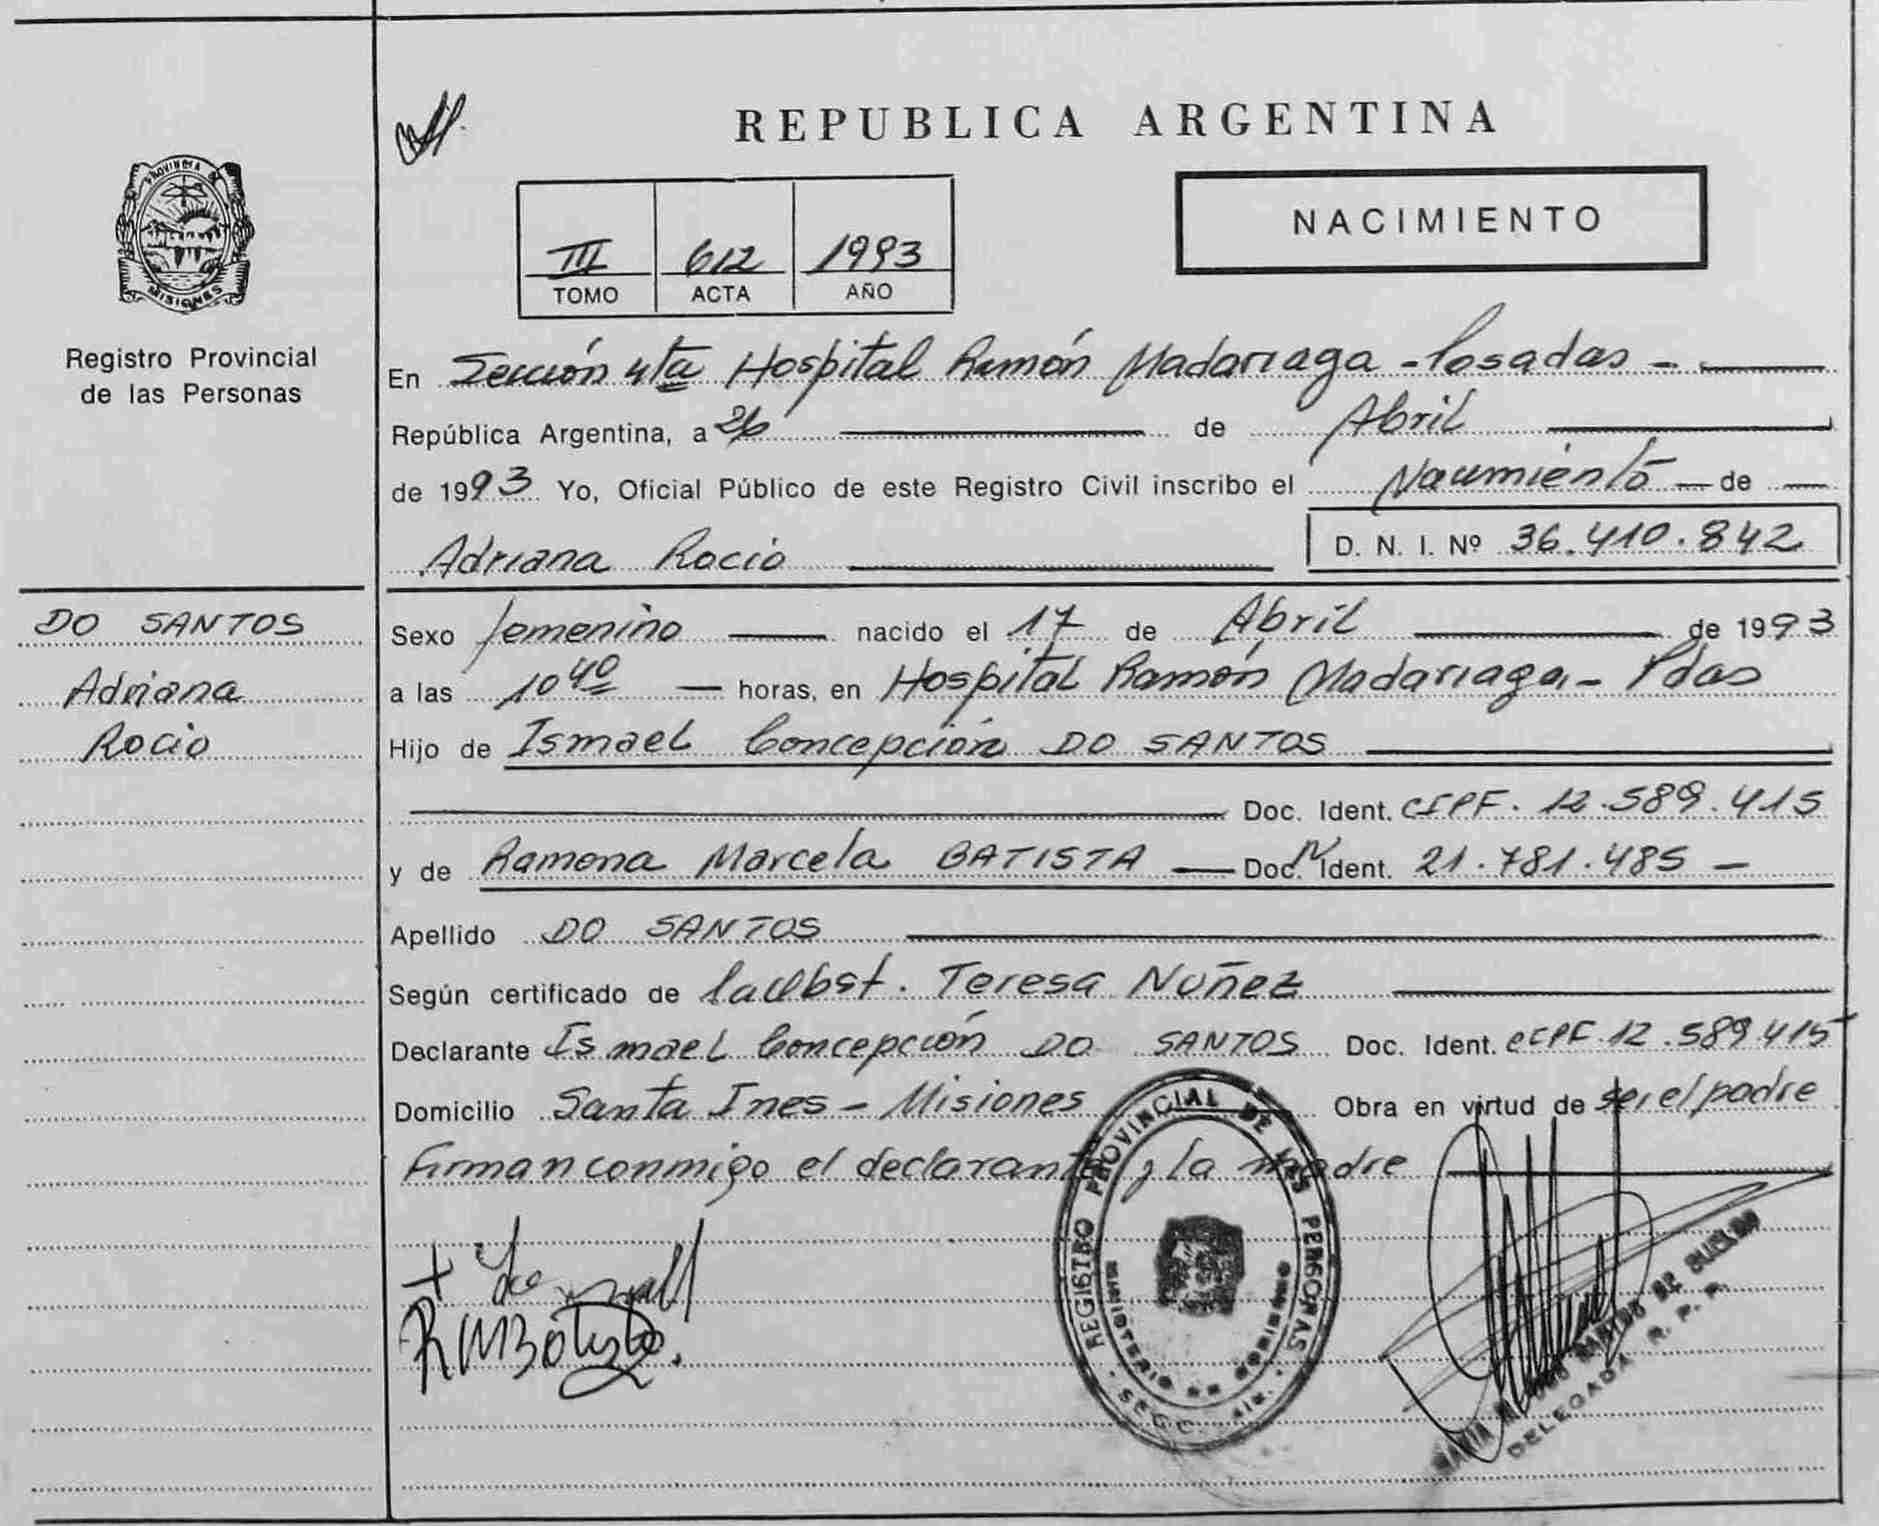 REPUBLICA ARGENTINA
PROVINCIA DE
MISIONES
Registro Provincial
de las Personas
III 612 1993
TOMO ACTA AÑO
NACIMIENTO
En Sección 4ta Hospital Ramón Madariaga - Posadas -
República Argentina, a 26 de Abril
de 1993 Yo, Oficial Público de este Registro Civil inscribo el Nacimiento de
Adriana Rocio D. N. I. Nº 36.410.842
DO SANTOS
Adriana
Rocio
Sexo femenino nacido el 17 de Abril de 1993
a las 10 40 horas, en Hospital Ramón Madariaga - Pdas
Hijo de Ismael Concepción DO SANTOS
Doc. Ident. CIPF. 12.589.415
y de Ramona Marcela BATISTA Doc. Ident. 21.781.485 -
Apellido DO SANTOS
Según certificado de Teresa Nuñez
Declarante Ismael Concepción DO SANTOS Doc. Ident. CIPF. 12.589.415
Domicilio Santa Ines - Misiones Obra en virtud de ser el padre
Firman conmigo el declarante y la madre
RMBatista
REGISTRO PROVINCIAL DE LAS PERSONAS
MINISTERIO DE GOBIERNO
DELEGADA R. P. P.